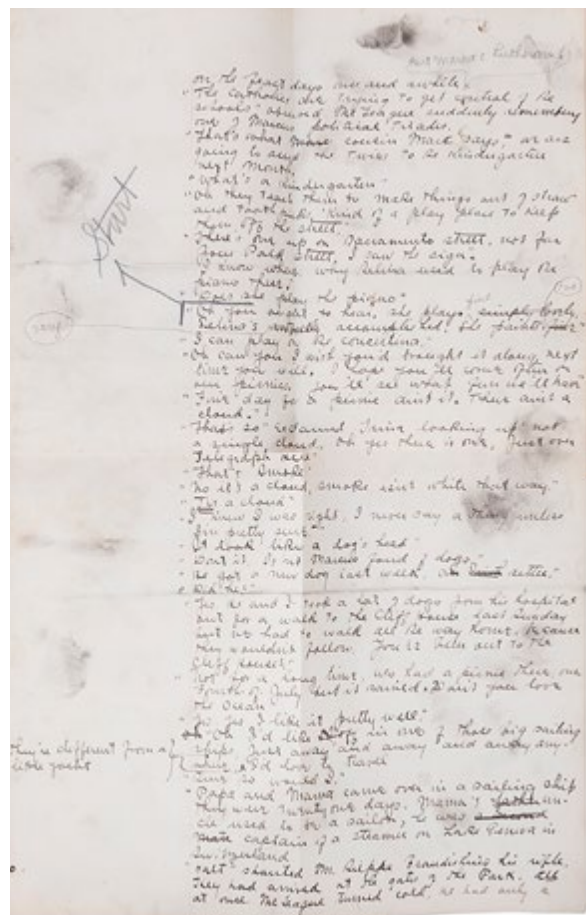 on the fast days once and awhile."
"The Catholics are trying to get control of the
schools" observed McTeague suddenly remembering
one of Marcus political tirades.
"That's what cousin Mark says," we are
going to send the twins to the kindergarten
next month."
"What's a kindergarten"
"Oh they teach them to make things out of straw
and toothpicks, kind of a play place to keep
them off the street."
"There's one up on Sacramento street, not far
from Polk Street. I saw the sign."
"I know where, why Selina used to play the
piano there."
"Does she play the piano"
"Oh you ought to hear, she plays simply lovely.
Selina's accomplished. She paints,
"I can play on the concertina."
"Oh can you I wish you'd brought it along, next
time you will. I hope you'll come often on
our picnics, you'll see what fun we'll have"
"Fine day for a picnic ain't it. There ain't a
cloud."
"That's so" exclaimed Trina, looking up "not
a single cloud. Oh yes there is one, just over
Telegraph
"That's smoke"
"No it's a cloud, smoke isn't white that way."
"Tis a cloud"
"I knew I was right, I never say a thing unless
I'm pretty sure."
"It looks like a dog's head"
"Don't it. Isn't Marcus fond of dogs."
"He got a new dog last week, a setter."
"Did he?"
"Yes he and I took a lot of dogs from his hospital
out for a walk to the Cliff House last Sunday
but we had to walk all the way home, because
they wouldn't follow. You've been out to the
Cliff House?"
"Not for a long time, we had a picnic there, one
Fourth of July but it rained. Don't you love
the Ocean"
"Yes I like it pretty well."
"Oh I'd like to go off in one of those big sailing
ships just away and away and away any-
where
They're different from a
little yacht
I'd love to travel"
"Sure so would I."
"Papa and Mama came over in a sailing ship
They were twenty one days. Mama's un-
cle used to be a sailor, he was
captain of a steamer on Lake Geneva in
Switzerland
"Halt" shouted Mr Sieppe brandishing his rifle.
They had arrived at the gates of the Park. All
at once McTeague turned cold, he had only a
Start